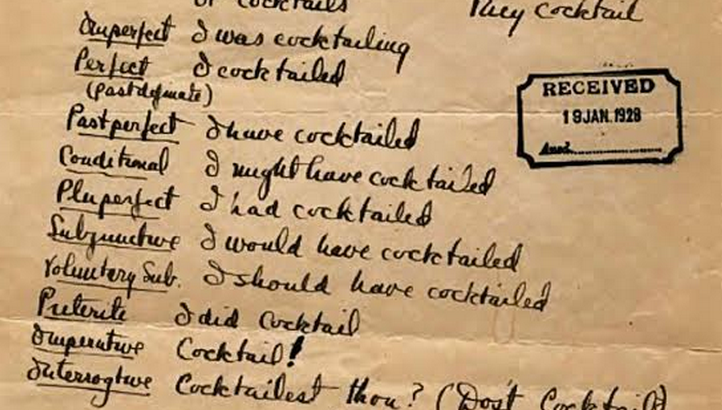 or cocktails They cocktail
Imperfect I was cocktailing
Perfect I cocktailed
(past definate)
Past perfect I have cocktailed
Conditional I might have cocktailed
Pluperfect I had cocktailed
Subjunctive I would have cocktailed
Voluntary Sub. I should have cocktailed
Preterite I did cocktail
Imperative Cocktail!
Interrogtive Cocktailest thou? (Dost Cocktail)
RECEIVED
19 JAN. 1928
Ansd.